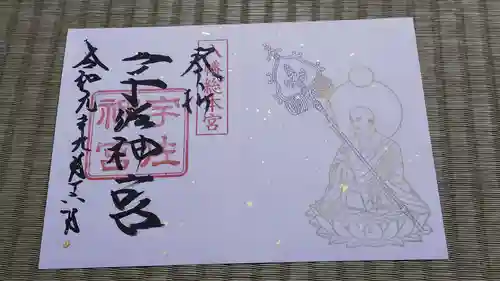 奉拝
八幡総本宮
宇佐神宮
宇佐
神宮
令和元年九月十六日